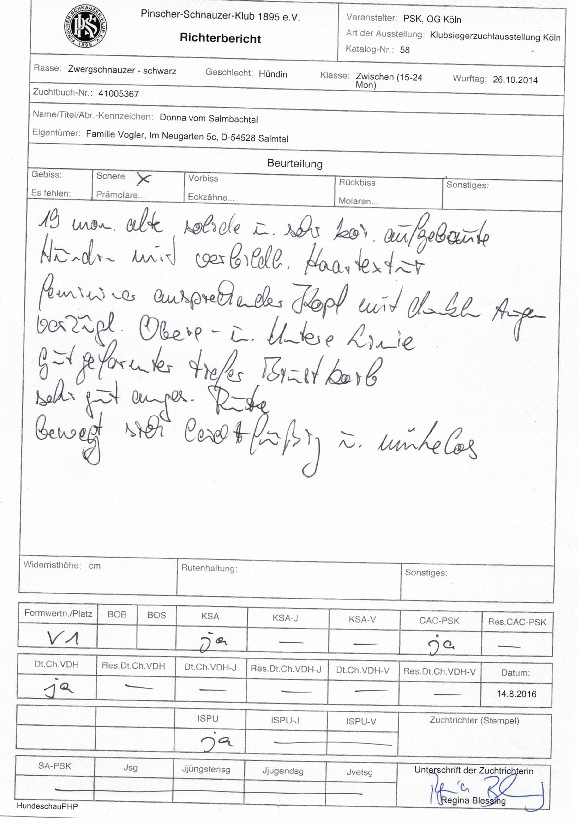 Pinscher-Schnauzer-Klub 1895 e.V.
Richterbericht
Veranstalter: PSK, OG Köln
Art der Ausstellung: Klubsiegerzuchtausstellung Köln
Katalog-Nr.: 58
Rasse: Zwergschnauzer - schwarz Geschlecht: Hündin Klasse: Zwischen (15-24 Mon) Wurftag: 26.10.2014
Zuchtbuch-Nr.: 41005367
Name/Titel/Abr.-Kennzeichen: Donna vom Salmbachtal
Eigentümer: Familie Vogler, Im Neugarten 5c, D-54528 Salmtal
Beurteilung
Gebiss: Schere X Vorbiss Rückbiss Sonstiges:
Es fehlen: Prämolare... Eckzähne... Molaren...
19 mon. alte, solide u. sehr kor. aufgebaute
Hündin mit vorbildl. Haartextur
femininer ansprechender Kopf mit dunklen Augen
vorzügl. Obere - u. Untere Linie
gut geformter tiefer Brustkorb
sehr gut anges. Rute
bewegt sich leichtfüßig u. mühelos
Widerristhöhe: cm Rutenhaltung: Sonstiges:
Formwertn./Platz BOB BOS KSA KSA-J KSA-V CAC-PSK Res.CAC-PSK
V1 ja — — ja —
Dt.Ch.VDH Res.Dt.Ch.VDH Dt.Ch.VDH-J Res.Dt.Ch.VDH-J Dt.Ch.VDH-V Res.Dt.Ch.VDH-V Datum:
ja — — — — — 14.8.2016
ISPU ISPU-J ISPU-V Zuchtrichter (Stempel)
ja — —
SA-PSK Jsg Jjüngstensg Jjugendsg Jvetsg Unterschrift der Zuchtrichterin
Regina Blessing
HundeschauPHP